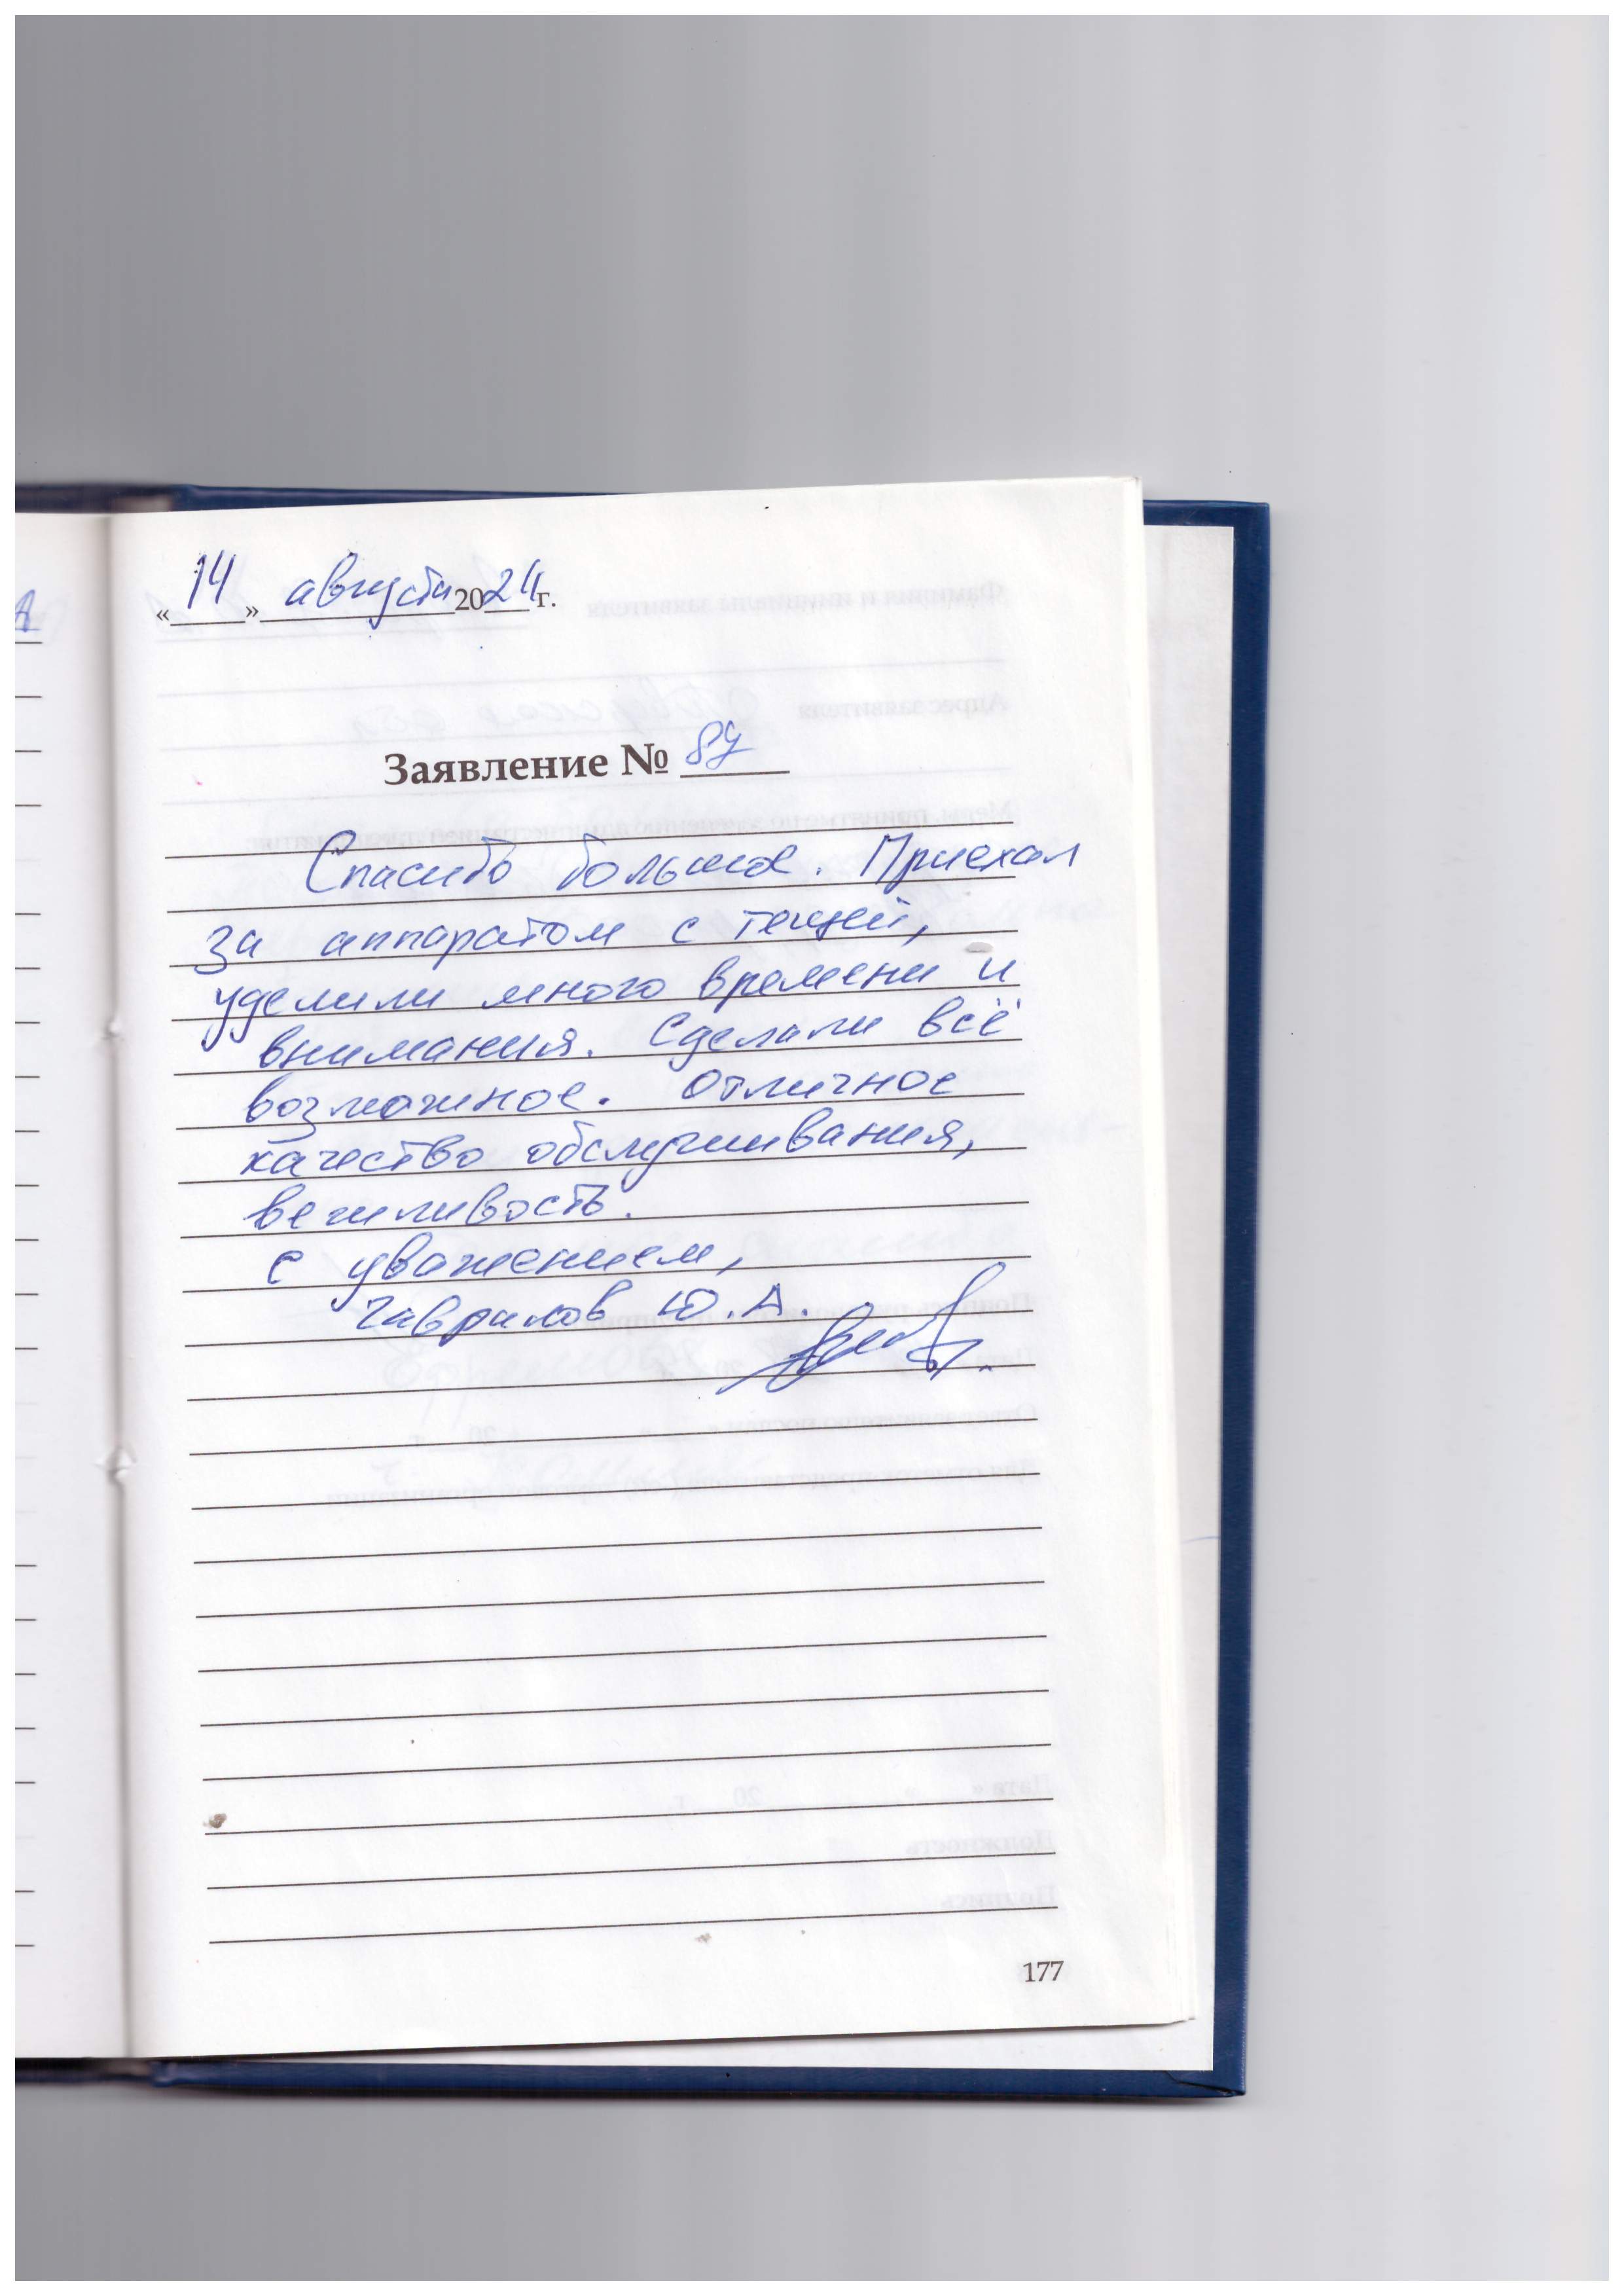 «14» августа 2024 г.
Заявление № 84
Спасибо большое. Приехал
за аппаратом с тёщей,
уделили много времени и
внимания. Сделали всё
возможное. Отличное
качество обслуживания,
вежливость.
с уважением,
Ю.А.
177